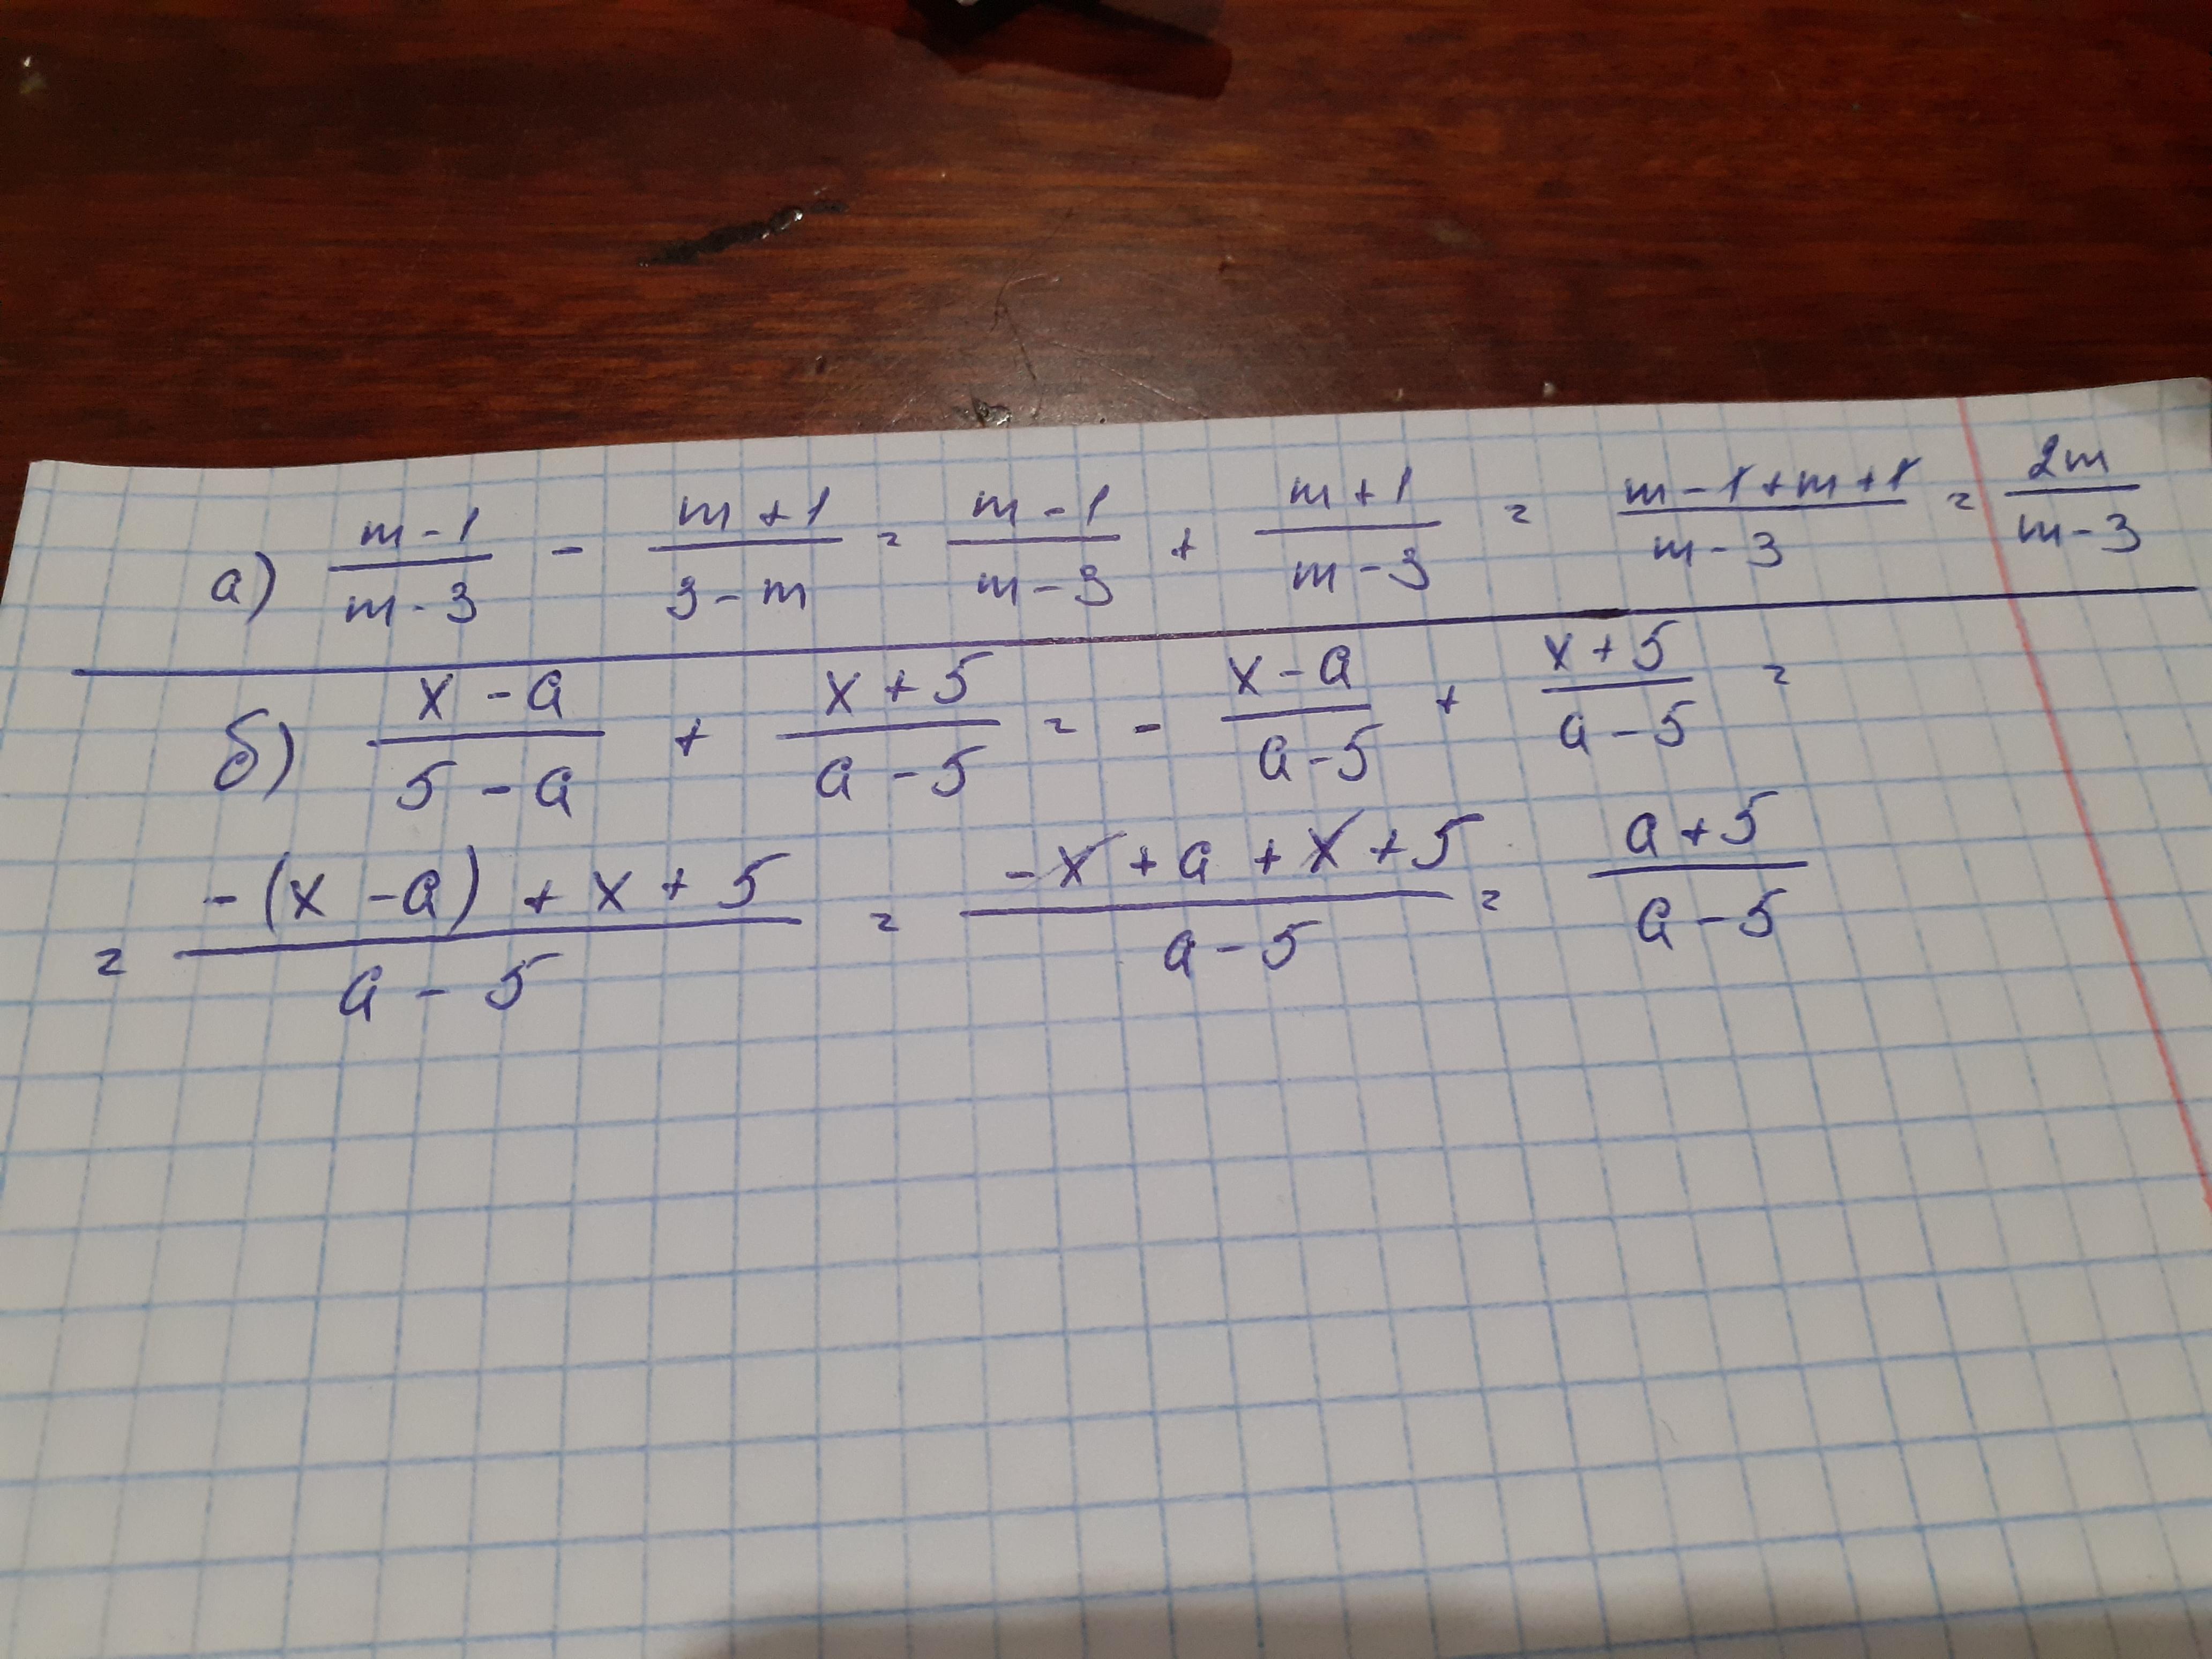 а) (m-1)/(m-3) - (m+1)/(3-m) = (m-1)/(m-3) + (m+1)/(m-3) = (m-1+m+1)/(m-3) = 2m/(m-3)
б) (x-a)/(5-a) + (x+5)/(a-5) = - (x-a)/(a-5) + (x+5)/(a-5) =
= (-(x-a)+x+5)/(a-5) = (-x+a+x+5)/(a-5) = (a+5)/(a-5)